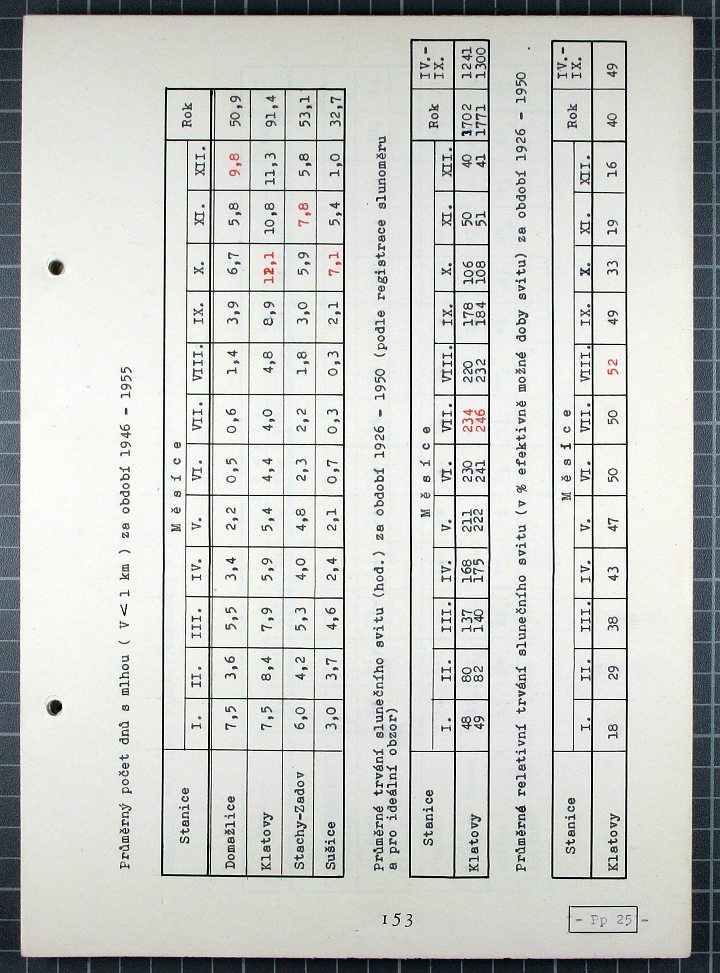 Průměrný počet dnů s mlhou ( V < 1 km ) za období 1946 - 1955
Stanice M ě s í c e Rok
I. II. III. IV. V. VI. VII. VIII. IX. X. XI. XII.
Domažlice 7,5 3,6 5,5 3,4 2,2 0,5 0,6 1,4 3,9 6,7 5,8 9,8 50,9
Klatovy 7,5 8,4 7,9 5,9 5,4 4,4 4,0 4,8 8,9 12,1 10,8 11,3 91,4
Stachy-Zadov 6,0 4,2 5,3 4,0 4,8 2,3 2,2 1,8 3,0 5,9 7,8 5,8 53,1
Sušice 3,0 3,7 4,6 2,4 2,1 0,7 0,3 0,3 2,1 7,1 5,4 1,0 32,7
Průměrné trvání slunečního svitu (hod.) za období 1926 - 1950 (podle registrace slunoměru
a pro ideální obzor)
Stanice M ě s í c e Rok IV.-
IX.
I. II. III. IV. V. VI. VII. VIII. IX. X. XI. XII.
Klatovy 48 80 137 168 211 230 234 220 178 106 50 40 1702 1241
49 82 140 175 222 241 246 232 184 108 51 41 1771 1300
Průměrné relativní trvání slunečního svitu (v % efektivně možné doby svitu) za období 1926 - 1950
Stanice M ě s í c e Rok IV.-
IX.
I. II. III. IV. V. VI. VII. VIII. IX. X. XI. XII.
Klatovy 18 29 38 43 47 50 50 52 49 33 19 16 40 49
153
- Pp 25 -